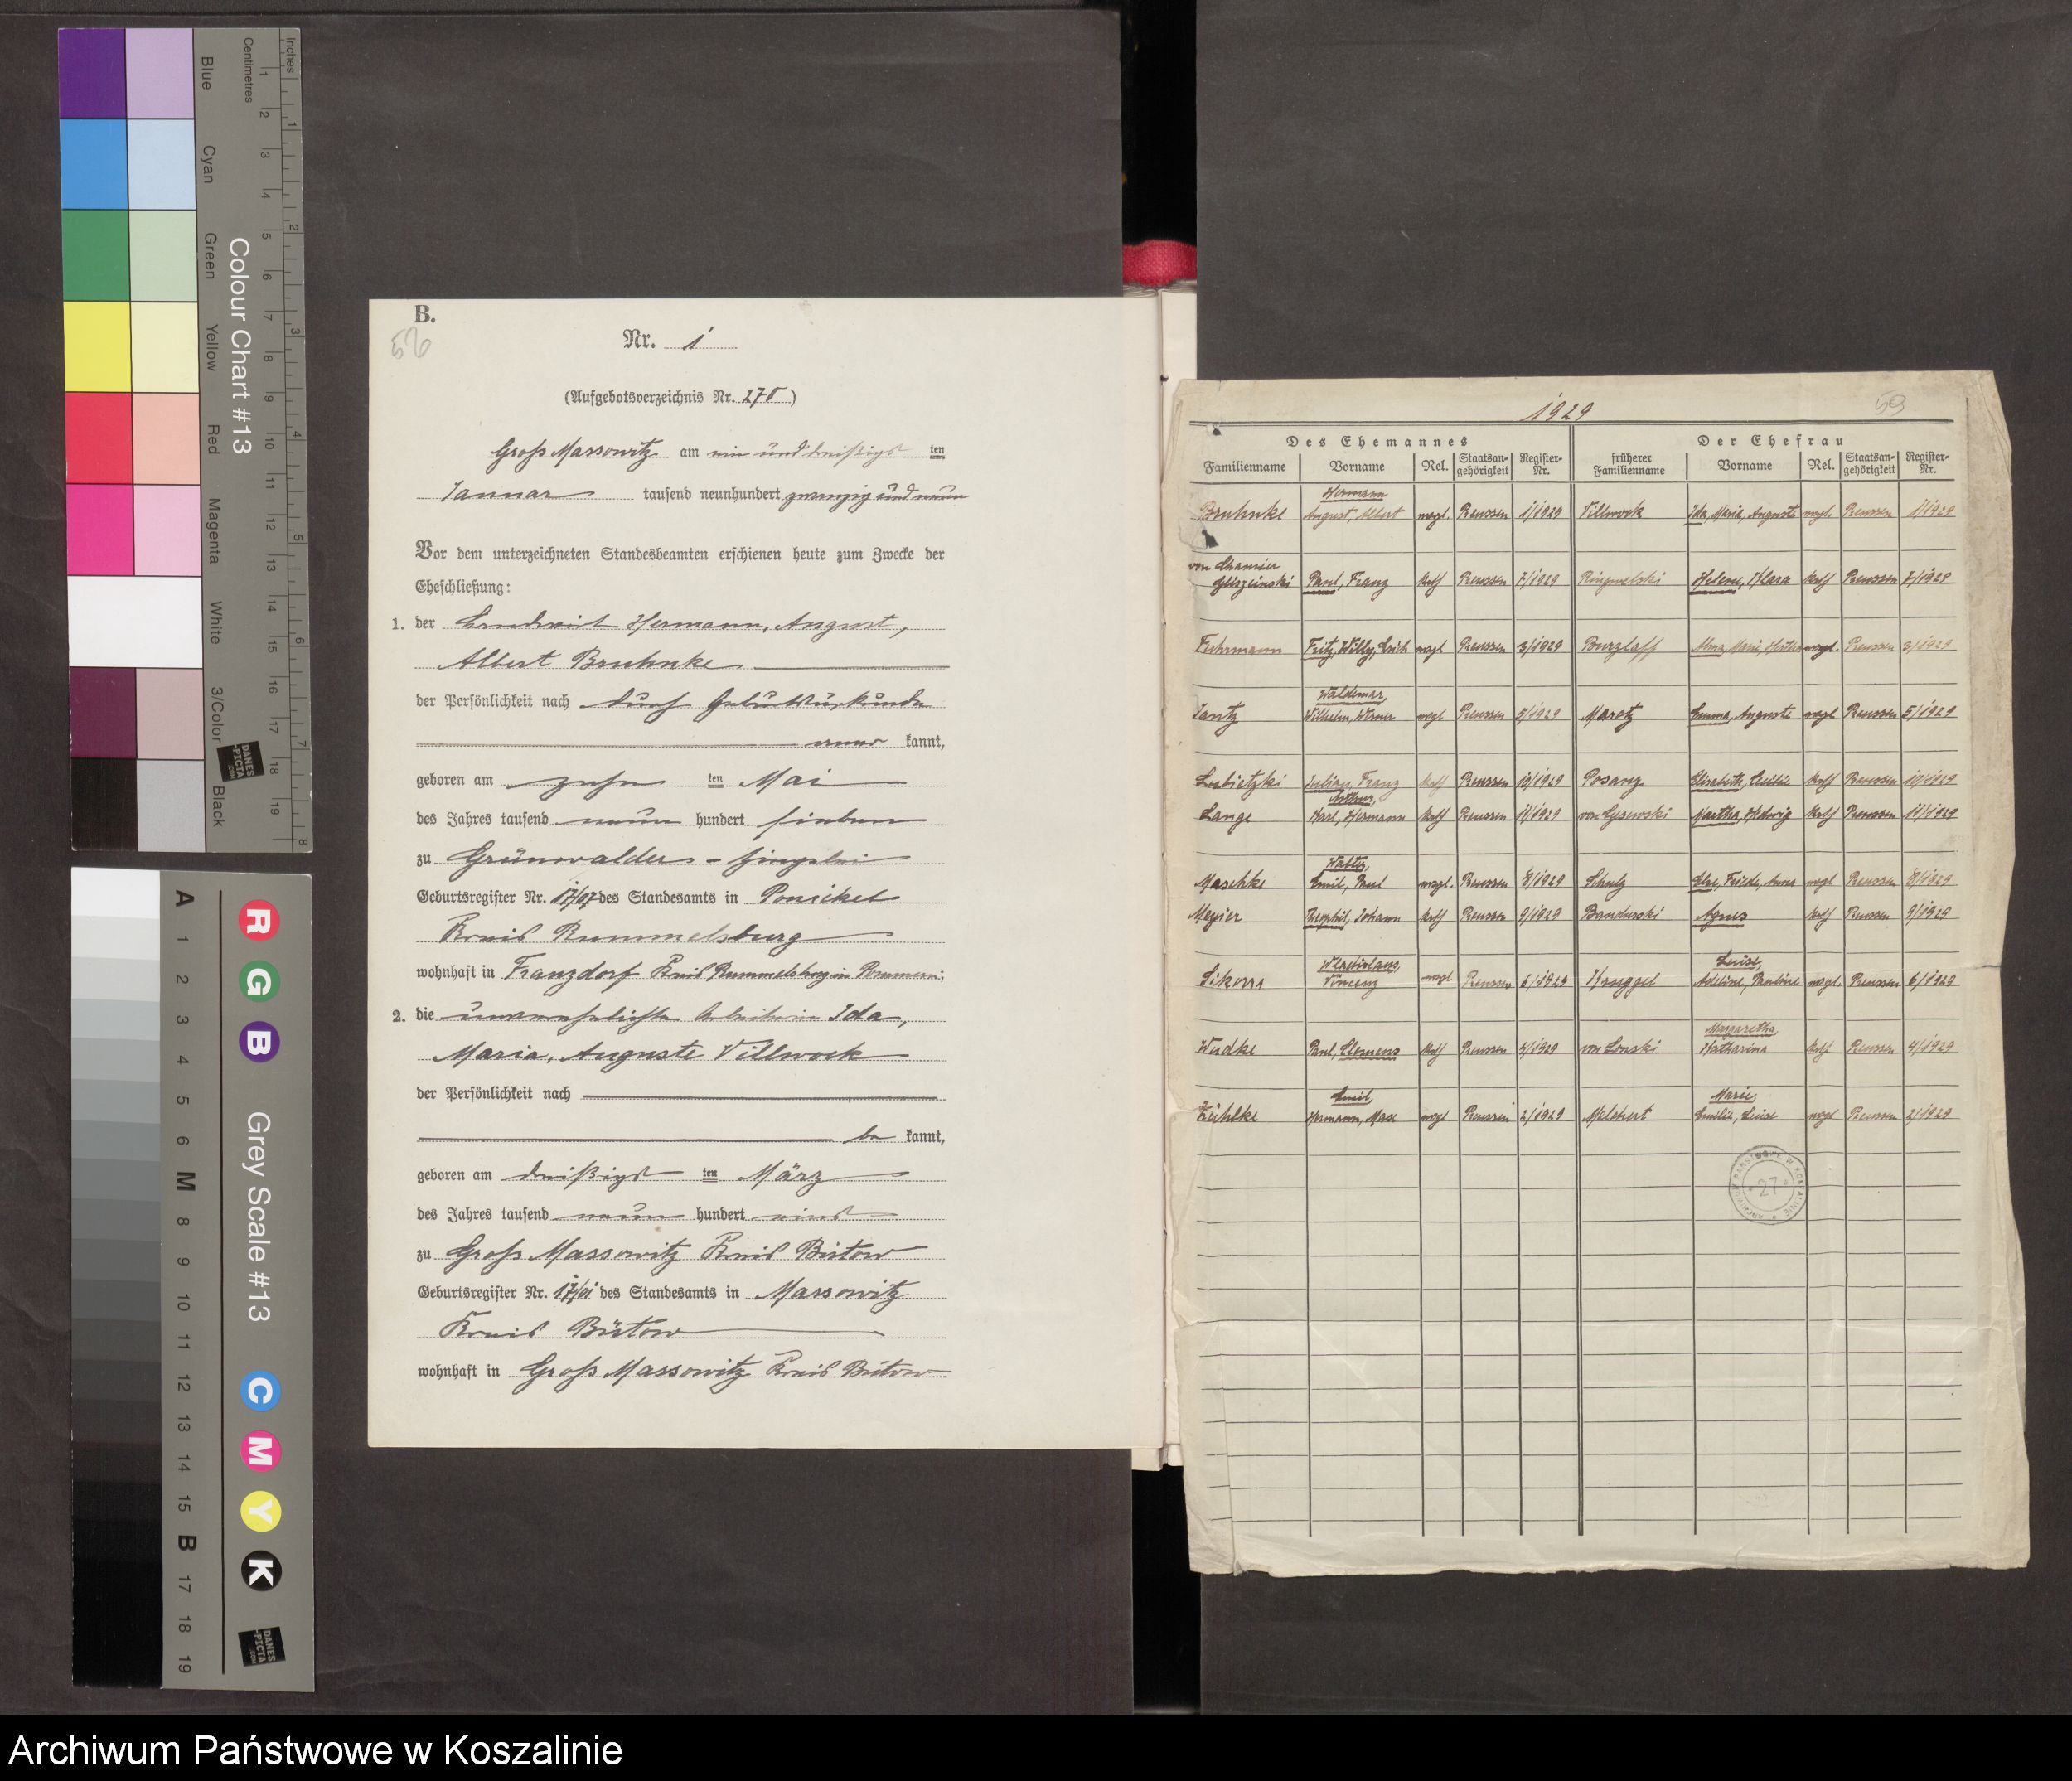 Inches
Centimetres
Colour Chart #13
Blue
Cyan
Green
Yellow
Red
Magenta
White
3/Color
Black
1 2 3 4 5 6 7 8 9 10 11 12 13 14 15 16 17 18 19
1 2 3 4 5 6 7 8
DANES
-PICTA
.COM
R G B
Grey Scale #13
C M Y K
A 1 2 3 4 5 6 M 8 9 10 11 12 13 14 15 B 17 18 19
DANES
-PICTA
.COM
B.
56
Nr. 1
(Aufgebotsverzeichnis Nr. )
Groß Massowitz am ein und dreißigst ten
Januar tausend neunhundert zwanzig und neun
Vor dem unterzeichneten Standesbeamten erschienen heute zum Zwecke der
Eheschließung:
1. der Landwirt Hermann, August,
Albert Bruhnke
der Persönlichkeit nach durch Geburtsurkunde
aner kannt,
geboren am zehn ten Mai
des Jahres tausend neun hundert sieben
zu Grünwalde
Geburtsregister Nr. 17/07 des Standesamts in Ponickel
Kreis Rummelsburg
wohnhaft in Franzdorf Kreis Rummelsburg in Pommern;
2. die unverehelichte Arbeiterin Ida,
Maria, Auguste Villwock
der Persönlichkeit nach
be kannt,
geboren am dreißigst ten März
des Jahres tausend neun hundert eins
zu Groß Massowitz Kreis Bütow
Geburtsregister Nr. 17/01 des Standesamts in Massowitz
Kreis Bütow
wohnhaft in Groß Massowitz Kreis Bütow
1929
59
Des Ehemannes Der Ehefrau
Familienname Vorname Rel. Staatsan-gehörigkeit Register-Nr. früherer Familienname Vorname Rel. Staatsan-gehörigkeit Register-Nr.
Bruhnke Hermann August, Albert evgl. Preussen 1/1929 Villwock Ida, Maria, Auguste evgl. Preussen 1/1929
von Chamier Gliszcinski Paul, Franz kath Preussen 7/1929 Ringwelski Helene, Klara kath Preussen 7/1929
Fuhrmann Fritz, Willy, Erich evgl Preussen 3/1929 Burzlaff Alma, Marie, evgl. Preussen 3/1929
Jantz Waldemar, Wilhelm, Werner evgl Preussen 5/1929 Marotz Emma, Auguste evgl Preussen 5/1929
Lubietzki Julian, Franz kath Preussen 10/1929 Posanz Elisabeth, Cecilie kath Preussen 10/1929
Lange Arthur, Karl, Hermann kath Preussen 11/1929 von Lysewski Martha, Hedwig kath Preussen 11/1929
Maschke Walter, Emil, Paul evgl. Preussen 8/1929 Schulz Else, Friede, Anna evgl Preussen 8/1929
Megier Theophil, Johann kath Preussen 9/1929 Bandurski Agnes kath Preussen 9/1929
Sikorra Wladislaus, Vinzenz evgl Preussen 6/1929 Kruggel Luise, Adeline, Pauline evgl. Preussen 6/1929
Wudke Paul, Clemens kath Preussen 4/1929 von Lonski Margaretha, Katharina kath Preussen 4/1929
Zühlke Emil, Hermann, Max evgl Preussen 2/1929 Melchert Marie, Emilie, Luise evgl Preussen 2/1929
ARCHIWUM PAŃSTWOWE W KOSZALINIE
* 27 *
Archiwum Państwowe w Koszalinie